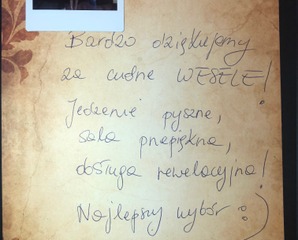 Bardzo dziękujemy
za cudne WESELE!
Jedzenie pyszne,
sala przepiękna,
obsługa rewelacyjna!
Najlepszy wybór :)